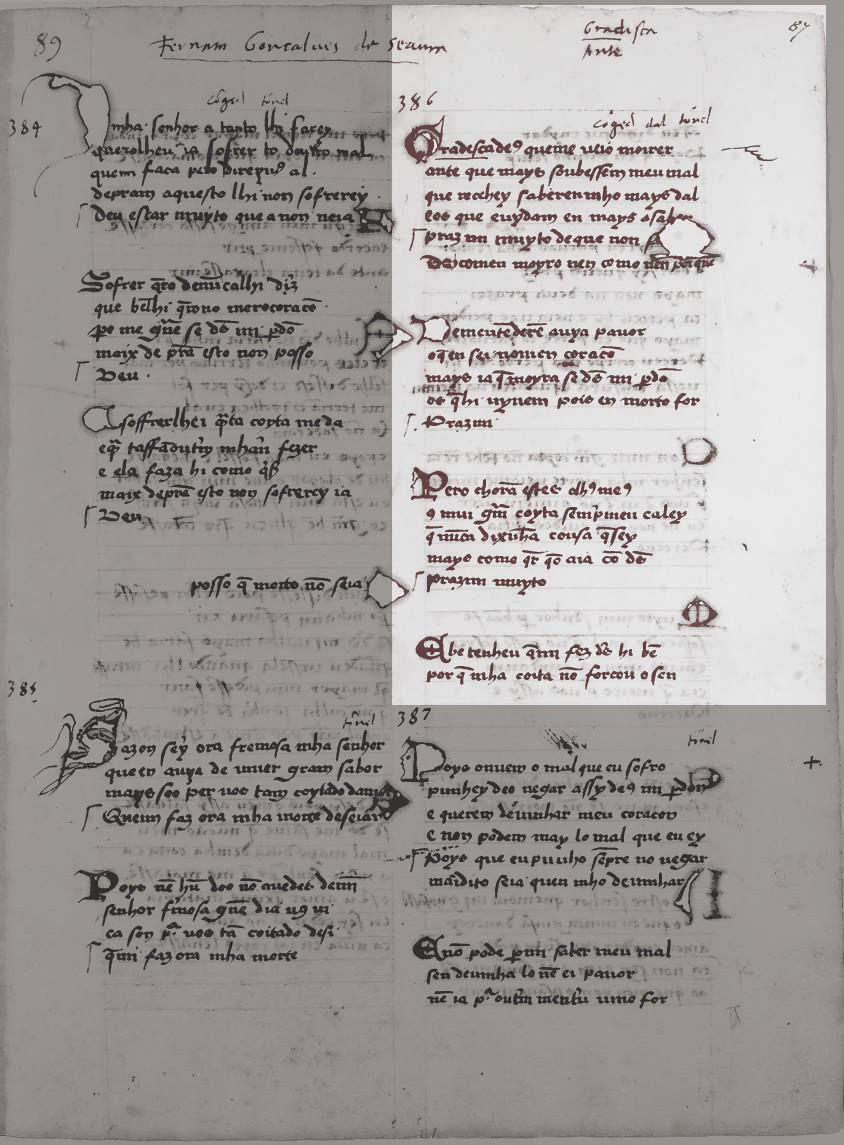 89
Fernam Goncalves de Seaura
Gradisca
Ante
87
384
tõnel
inha senhor a tanto lhi farey
quem faca pero direyuꝰ al.
depram aquesto lhi non sofrerey
deu estar muyto que a non ueia
Sofrer qͣto demi calhi diz
que bẽlhi qͥ no meu coraco
ꝑo me gͣue se dẽ mi ꝑdõ
maix de pͣm esto non posso
Deu.
A soffrerlhei qͣta coyta me da
e ela faza hi como
maix depͣm esto non sofrerey ia
Deu
posso q̃ morto nõ seia
385
tõnel
Sazon sey ora fremosa mha senhor
que eu auya de uiuer gram sabor
mays soo per uos tam coytado damor
Queim faz ora mha morte deseiar
Poys nẽ hũ doo nõ auedes demi
senhor fmosa gͣue dia uꝯ ui
ca son pͣ uos tã coitado desi
q̃mi faz ora mha morte
386
cõgel dal tõnel
Gradescadeꝯ queme ueio morrer
ante que mays soubessem meu mal
que receey saberenmho mays dal
eos que cuydam en mays a saber
praz mi muyto de que non
De como moyro nen como nen porque
Dementẽderẽ auya pauor
o q̃ en sei no meu coracõ
mays ia q̃ moyra se dẽ mi ꝑdõ
os q̃ hi uyuem pois eu morto for
Prazmi
Pero chorã estes olhꝯ meꝯ
ꝯ mui gͣm coyta sempͥ meu caley
q̃ nũca dixi nha cousa q̃ sey
mays como qͥr qͣo aia cõ dẽ
prazmi muyto
E be tenheu q̃mi fez dẽ hi bẽ
por q̃ mha coita nõ forcou o sen
387
tõnel
Poys ouuem o mal que eu sofro
punhey deo negar assy deꝯ mi ꝑdon
e querem deuinhar meu coracon
e non podem may lo mal que eu ey
Poys que eu punho sẽpre no negar
maldito seia quen mho deuinhar
E nõ pode ꝑ mi saber meu mal
sen deuinha lo nẽ ei pauor
nẽ ia pͣ outͥm mentͥu uiuo for